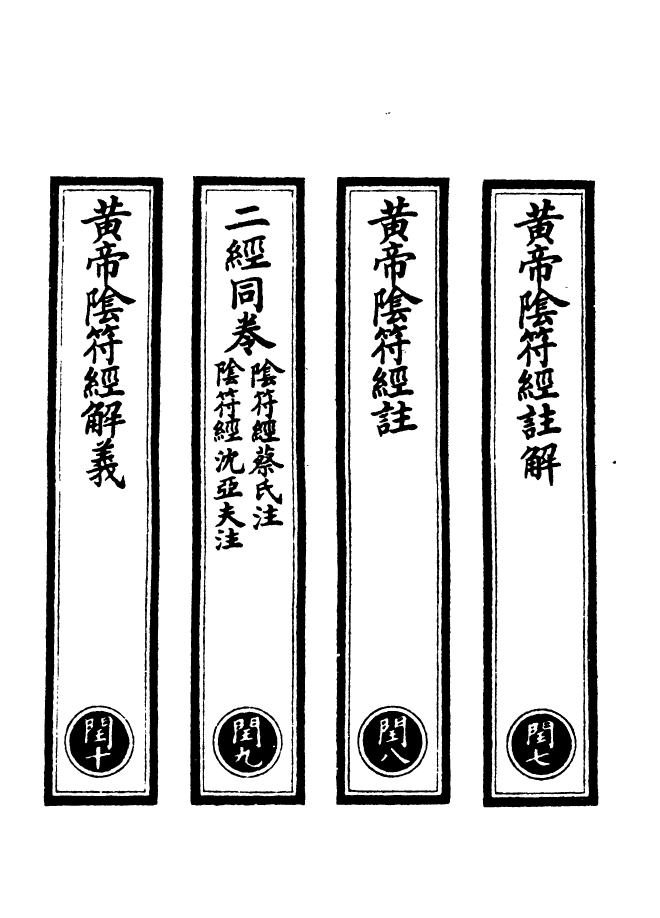 黃帝陰符經註解
閏七
黃帝陰符經註
閏八
二經同卷
陰符經蔡氏注
陰符經沈亞夫注
閏九
黃帝陰符經解義
閏十